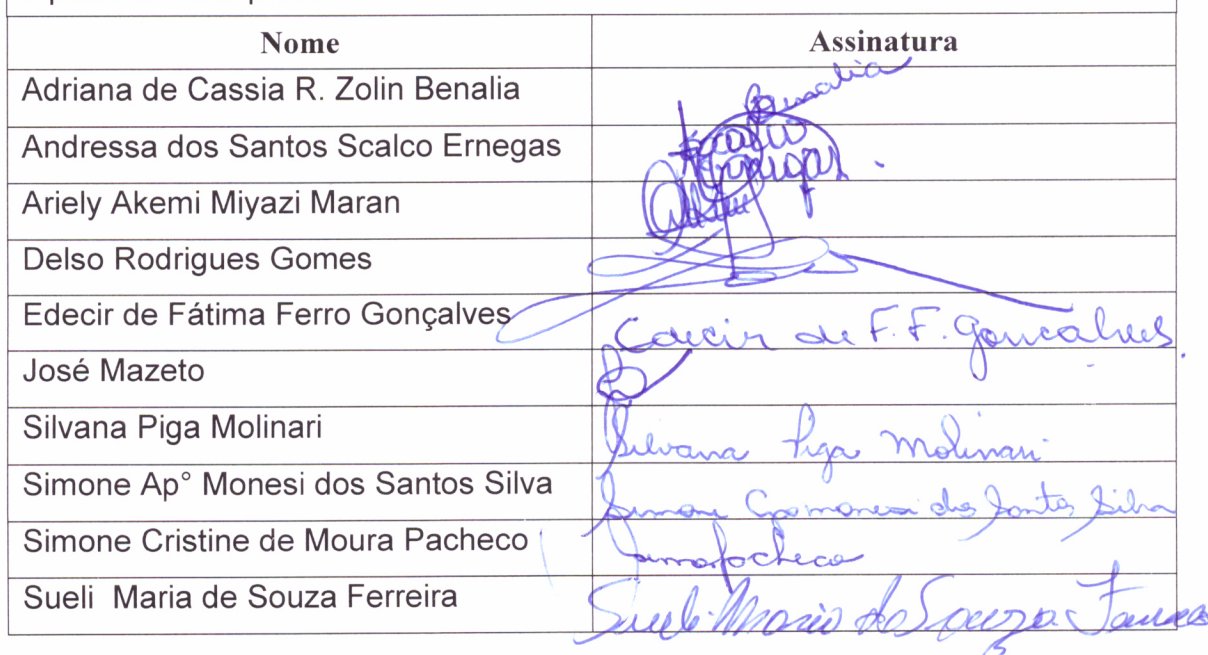 Nome Assinatura
Adriana de Cassia R. Zolin Benalia Benalia
Andressa dos Santos Scalco Ernegas Scalco Ernegas
Ariely Akemi Miyazi Maran
Delso Rodrigues Gomes
Edecir de Fátima Ferro Gonçalves Edecir de F. F. Gonçalves.
José Mazeto
Silvana Piga Molinari Silvana Piga Molinari
Simone Ap° Monesi dos Santos Silva Simone Ap Monesi dos Santos Silva
Simone Cristine de Moura Pacheco Simonpacheco
Sueli Maria de Souza Ferreira Sueli Maria de Souza